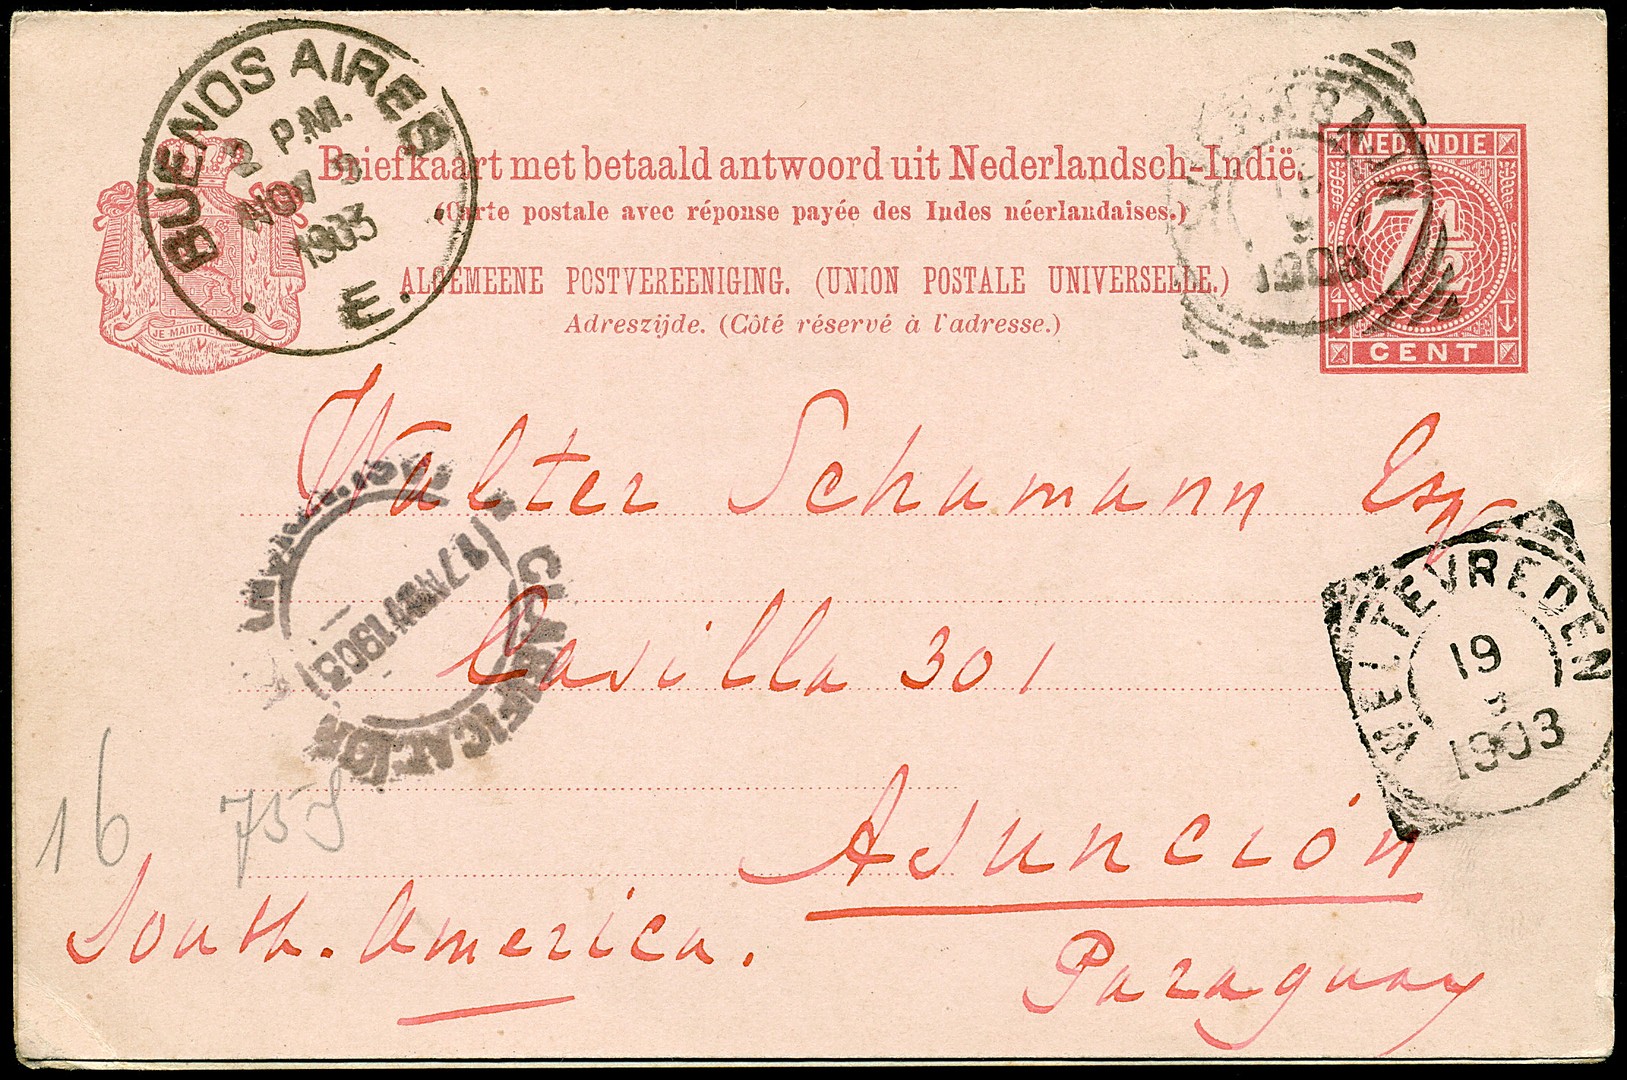 BUENOS AIRES
2 P.M.
NOV 3
1903
E.
Briefkaart met betaald antwoord uit Nederlandsch-Indië.
(Carte postale avec réponse payée des Indes néerlandaises.)
ALGEMEENE POSTVEREENIGING. (UNION POSTALE UNIVERSELLE.)
Adreszijde. (Côté réservé à l'adresse.)
JE MAINTIENDRAI
NED. INDIE
7 1/2
CENT
Walter Schamann Esq
Casilla 301
Asunción
Paraguay
South. America.
17 NOV 1903
WELTEVREDEN
19
1903
16
75